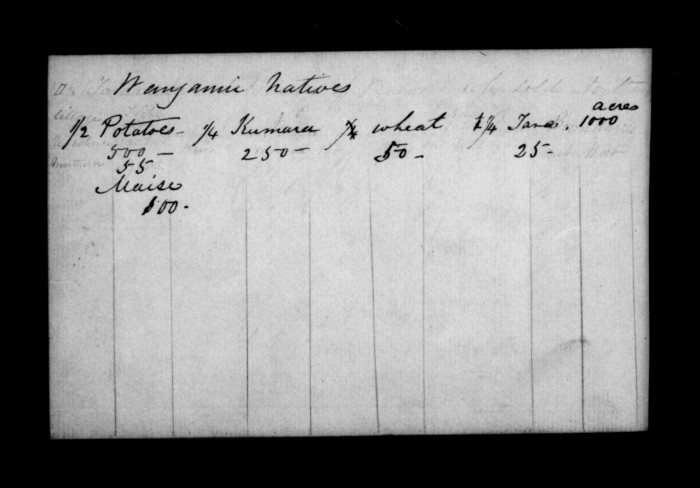 Wanganui Natives
acres
1/2 Potatoes - 1/4 Kumara wheat 1/4 Taro. 1000
500 - 250 - 50 - 25 -
55
Maise
100 -